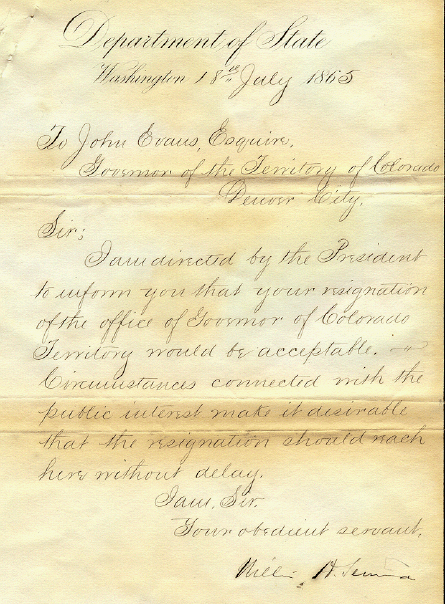 Department of State
Washington 18th July 1865
To John Evans, Esquire,
Governor of the Territory of Colorado
Denver City.
Sir;
I am directed by the President
to inform you that your resignation
of the office of Governor of Colorado
Territory would be acceptable.
Circumstances connected with the
public interest make it desirable
that the resignation should reach
here without delay.
I am, Sir.
Your obedient servant,
William H. Seward